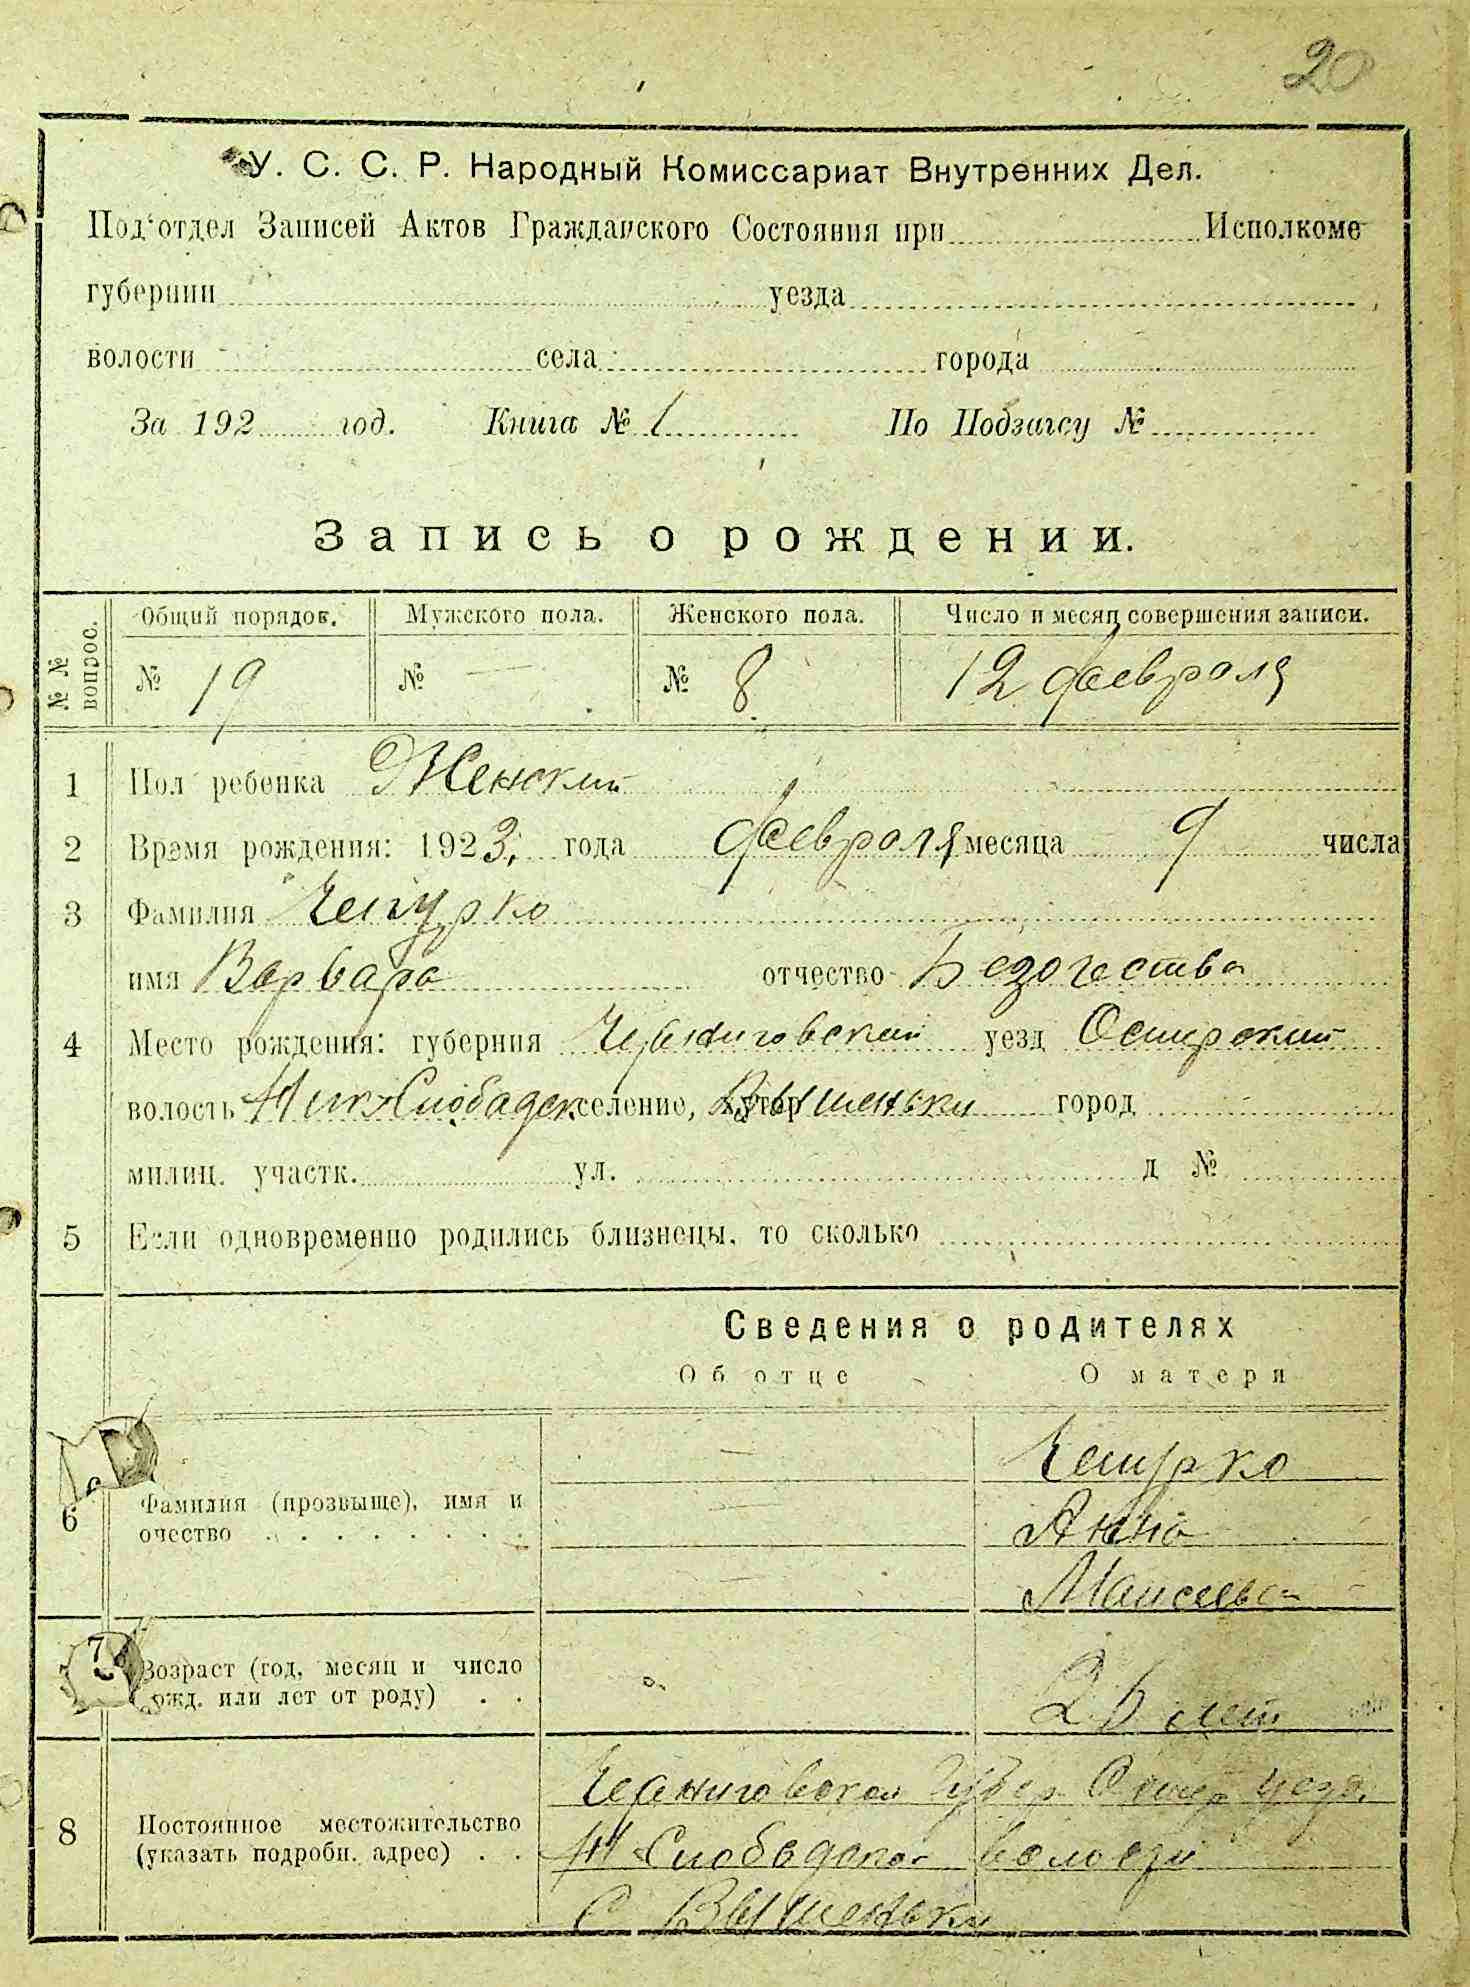 20
У. С. С. Р. Народный Комиссариат Внутренних Дел.
Под'отдел Записей Актов Гражданского Состояния при Исполкоме
губернии уезда
волости села города
За 192 год. Книга № 1 По Подзагсу №
Запись о рождении.
№ № вопрос. Общий порядов. Мужского пола. Женского пола. Число и месяц совершения записи.
№ 19 № — № 8 12 февраля
1 Пол ребенка Женский
2 Время рождения: 1923, года февраля месяца 9 числа
3 Фамилия Чепурко
имя Варвара отчество Безотества
4 Место рождения: губерния Черниговский уезд Остерский
волость Ник Слободск селение, хутор Вышеньки город
милиц. участк. ул. д №
5 Если одновременно родились близнецы, то сколько
Сведения о родителях
Об отце О матери
6 Фамилия (прозвыще), имя и очество
— Чепурко
— Анна
— Маисеевна
7 Возраст (год, месяц и число рожд. или лет от роду) 25 лет
8 Постоянное местожительство (указать подробн. адрес)
Черниговская Губер Остер уезд.
Н Слободская волости
С Вышеньки